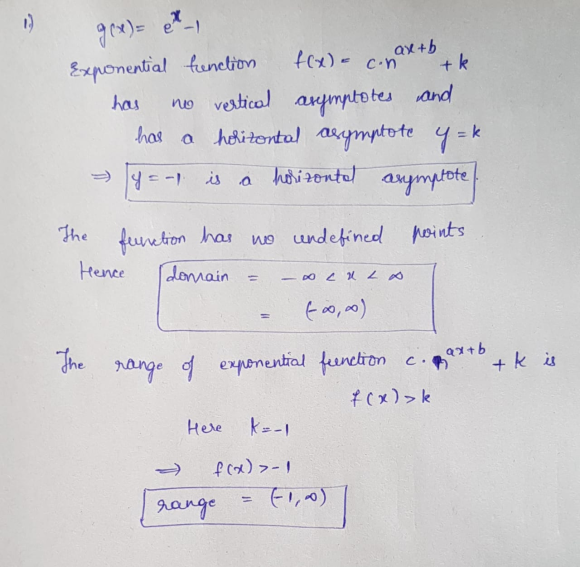 1) g(x) = e^x - 1
Exponential function f(x) = c·n^(ax+b) + k
has no vertical asymptotes and
has a horizontal asymptote y = k
⇒ y = -1 is a horizontal asymptote.
The function has no undefined points
Hence domain = -∞ < x < ∞
= (-∞, ∞)
The range of exponential function c·n^(ax+b) + k is
f(x) > k
Here k = -1
⇒ f(x) > -1
range = (-1, ∞)